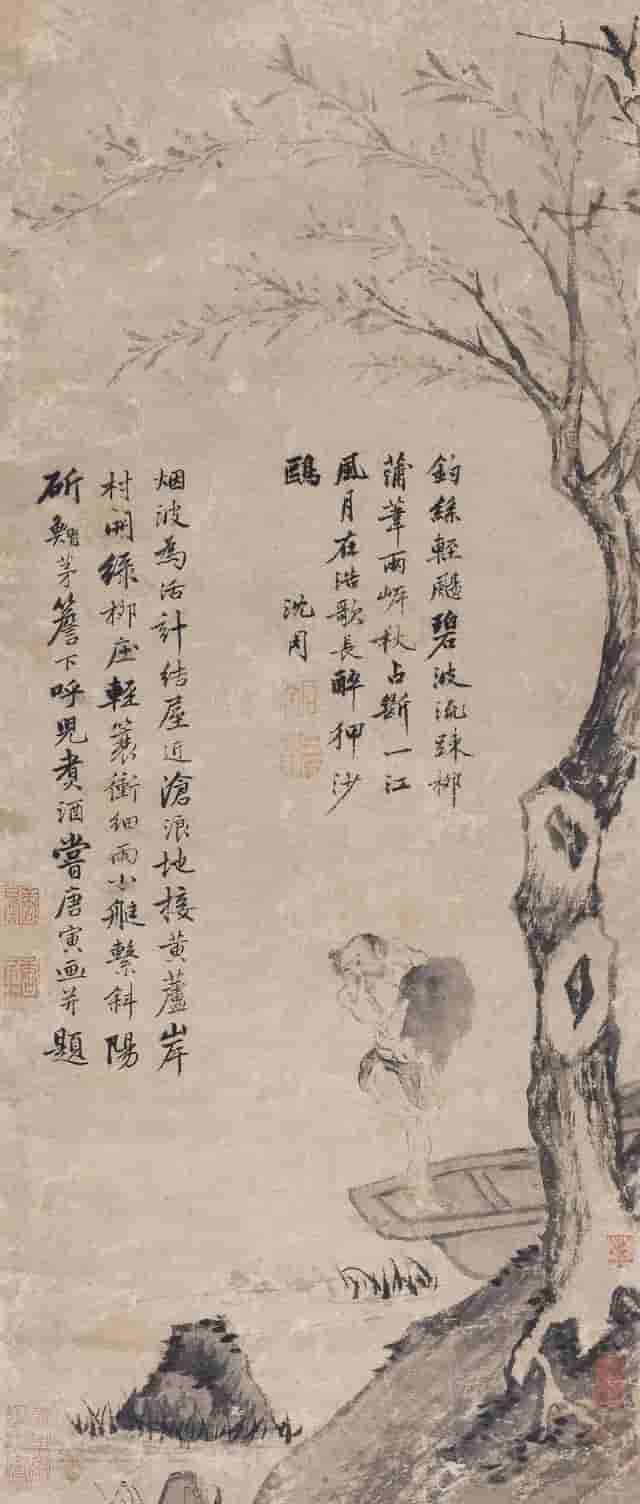 釣絲輕颺碧波流踈柳
蒲葦兩岸秋占斷一江
風月在浩歌長醉狎沙
鷗 沈周
烟波為活計結屋近滄浪地接黃蘆岸
村開綠柳庄輕蓑衝細雨小艇繫斜陽
斫鱠茅簷下呼兒煮酒嘗唐寅画并題